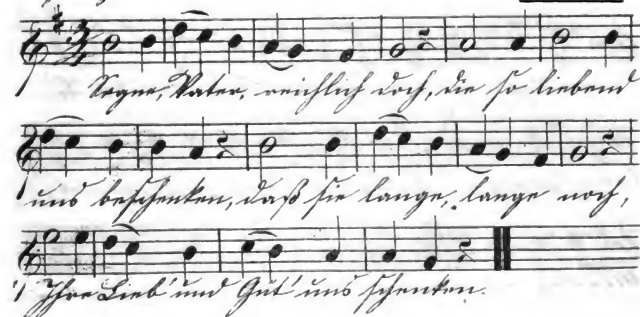 Segne, Vater, reichlich doch, die so liebend
uns beschenken, daß sie lange, lange noch,
Ihre Lieb' und Güt' uns schenken.